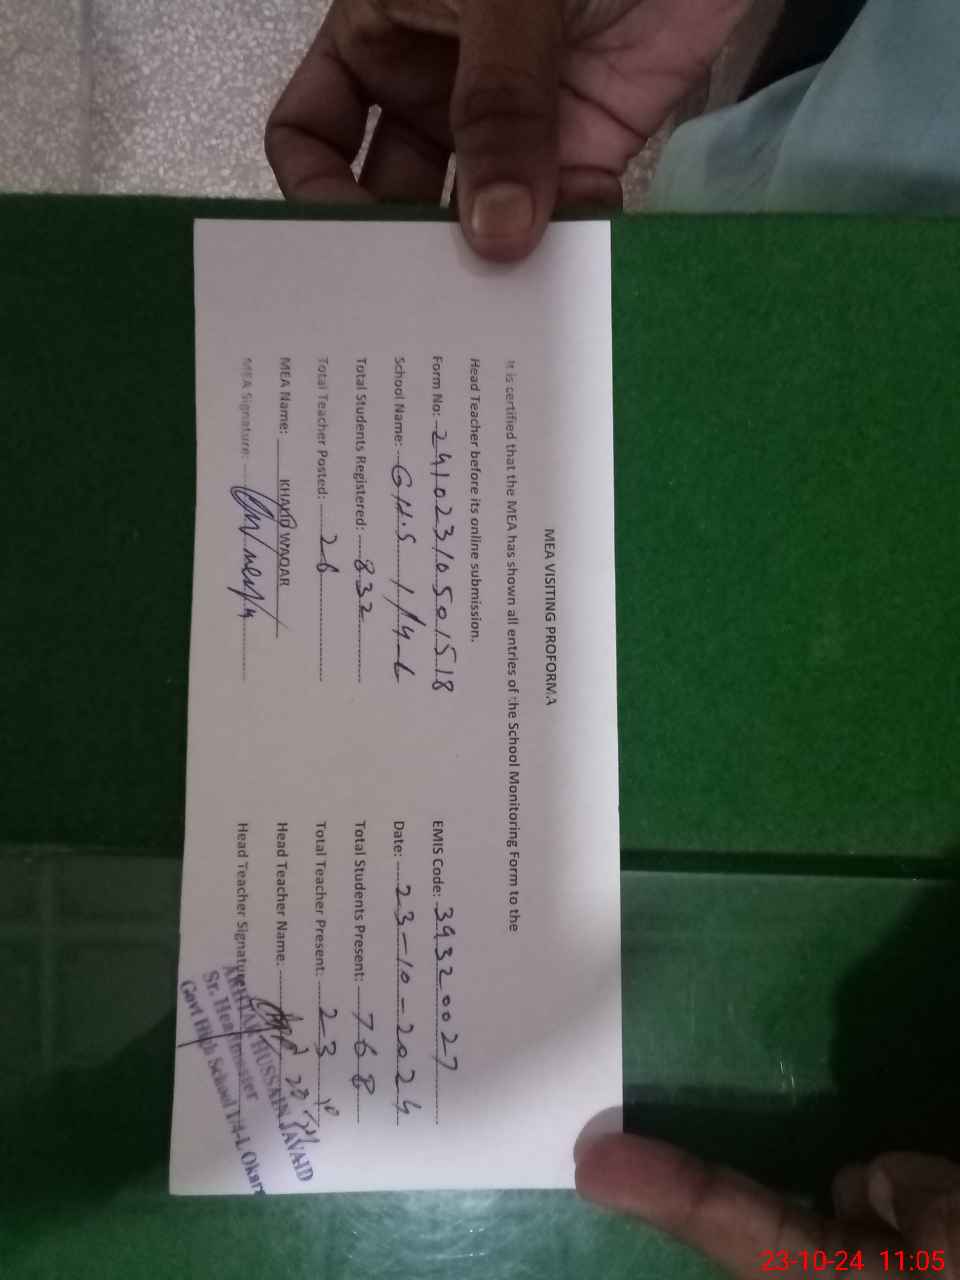 MEA VISITING PROFORMA
It is certified that the MEA has shown all entries of the School Monitoring Form to the
Head Teacher before its online submission.
Form No: 24102310501518 EMIS Code: 39320027
School Name: G.H.S 1/4-L Date: 23-10-2024
Total Students Registered: 832 Total Students Present: 768
Total Teacher Posted: 26 Total Teacher Present: 23
MEA Name: KHALID WAQAR Head Teacher Name.
MEA Signature: Head Teacher Signature
AKHTAR HUSSAIN JAVAID
Sr. Headmaster
Govt High School 1/4-L Okara
23-10-24 11:05